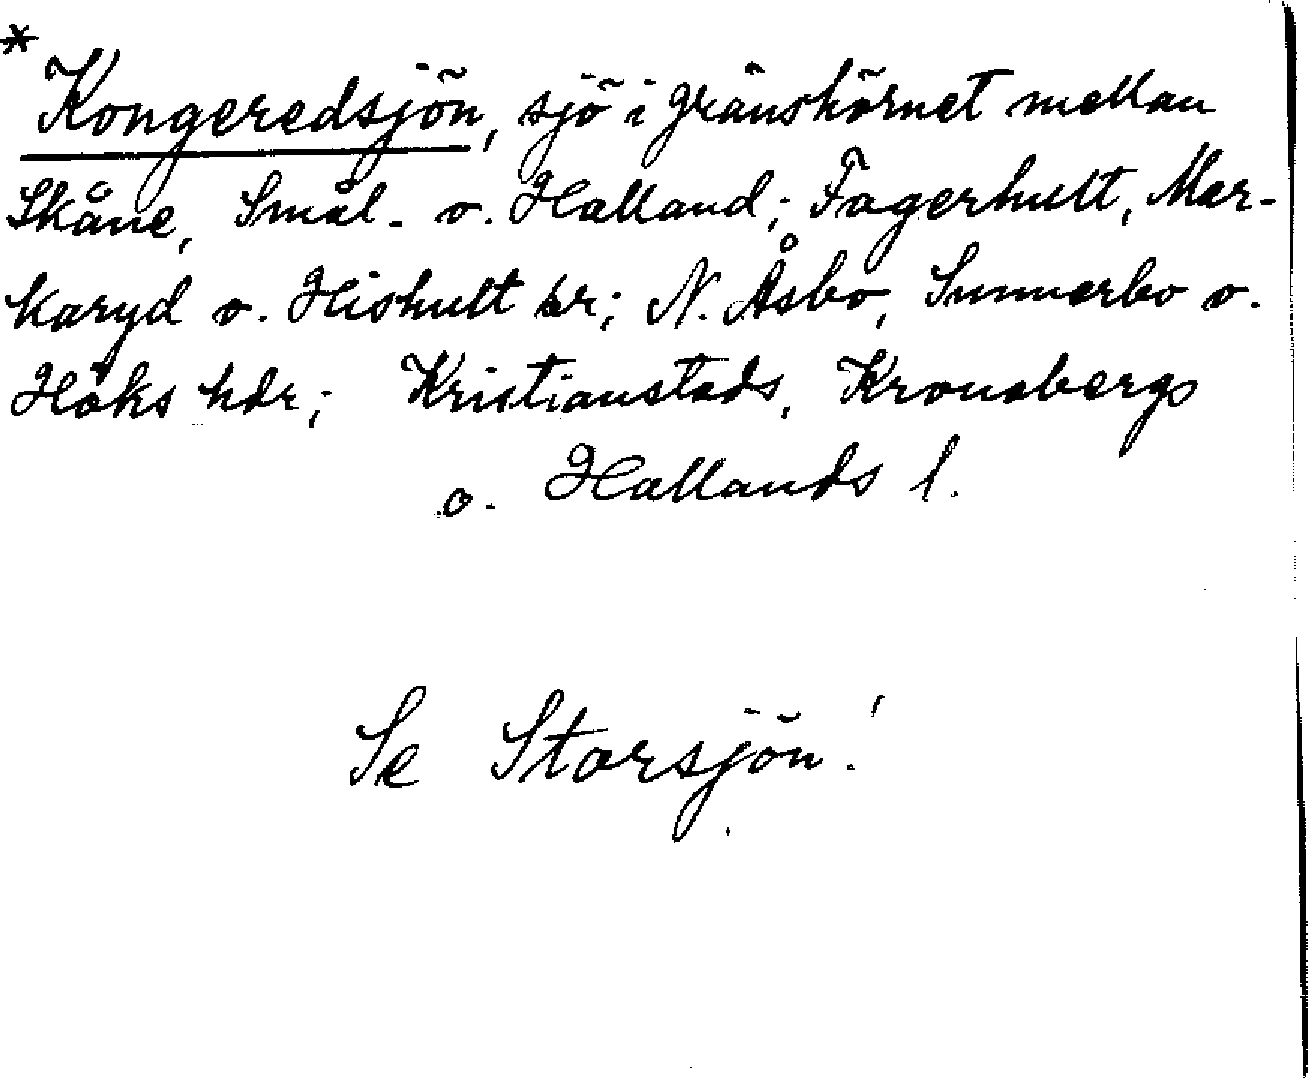 *
Kongeredsjön, sjö i gränshörnet mellan
Skåne, Smål. o. Halland; Fagerhult, Mar-
karyd o. Hishult sr; N. Åsbo, Sunnerbo o.
Höks hdr; Kristianstads, Kronobergs
o. Hallands l.
Se Storsjön!